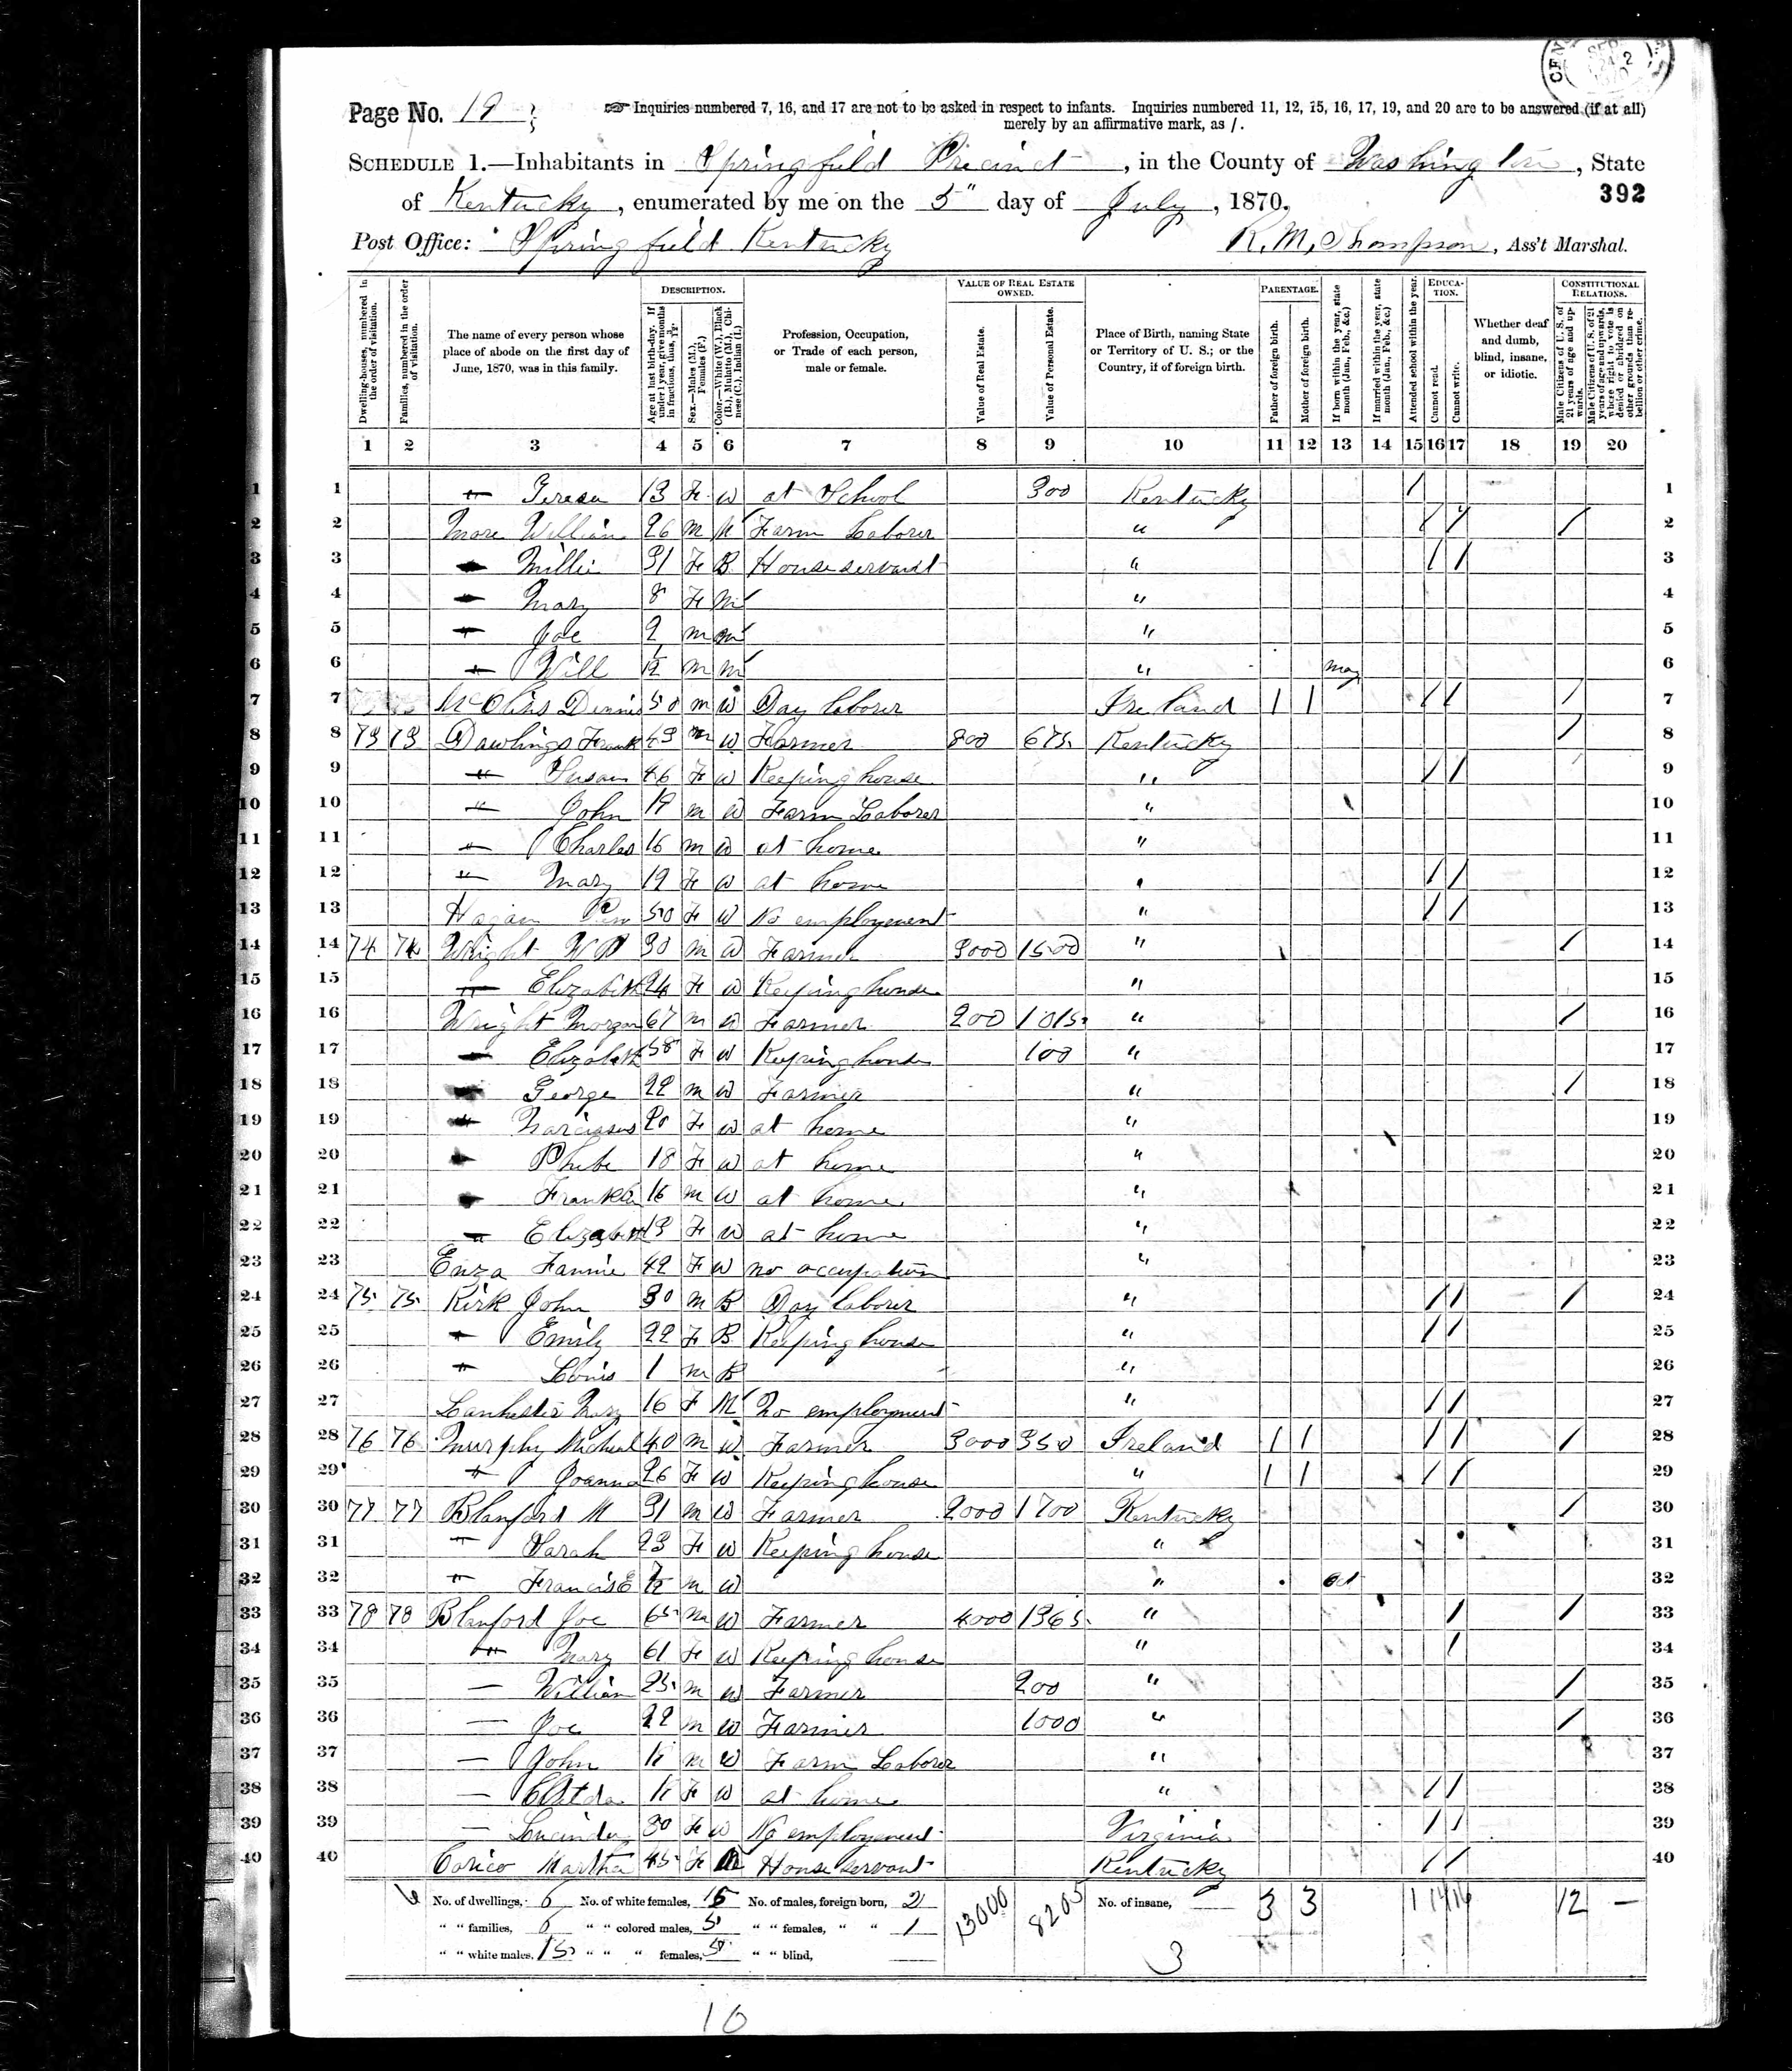 CEN SEP 2 1870
Page No. 10
☞ Inquiries numbered 7, 16, and 17 are not to be asked in respect to infants. Inquiries numbered 11, 12, 15, 16, 17, 19, and 20 are to be answered (if at all)
merely by an affirmative mark, as /.
SCHEDULE 1.—Inhabitants in Springfield Precinct, in the County of Washington, State
of Kentucky, enumerated by me on the 5" day of July, 1870.
392
Post Office: Springfield Kentucky
R. M. Thompson, Ass't Marshal.
DESCRIPTION. VALUE OF REAL ESTATE OWNED. PARENTAGE. EDUCATION. CONSTITUTIONAL RELATIONS.
Dwelling-houses, numbered in the order of visitation.
Families, numbered in the order of visitation.
The name of every person whose place of abode on the first day of June, 1870, was in this family.
Age at last birth-day. If under 1 year, give months in fractions, thus, 3/12.
Sex.—Males (M.), Females (F.)
Color.—White (W.), Black (B.), Mulatto (M.), Chinese (C.), Indian (I.)
Profession, Occupation, or Trade of each person, male or female.
Value of Real Estate.
Value of Personal Estate.
Place of Birth, naming State or Territory of U. S.; or the Country, if of foreign birth.
Father of foreign birth.
Mother of foreign birth.
If born within the year, state month (Jan., Feb., &c.)
If married within the year, state month (Jan., Feb., &c.)
Attended school within the year.
Cannot read.
Cannot write.
Whether deaf and dumb, blind, insane, or idiotic.
Male Citizens of U. S. of 21 years of age and upwards.
Male Citizens of U. S. of 21 years of age and upwards, where right to vote is denied or abridged on other grounds than rebellion or other crime.
1 2 3 4 5 6 7 8 9 10 11 12 13 14 15 16 17 18 19 20
1 1 " Teresa 13 F W at School 300 Kentucky / 1
2 2 More William 26 M M Farm Laborer " / / / 2
3 3 " Millie 31 F B House servant " / / 3
4 4 " Mary 8 F M " 4
5 5 " Joe 2 M M " 5
6 6 " Will 1/12 M M " May 6
7 7 Dennis 50 M W Day laborer Ireland / / / / / 7
8 8 73 73 Dawlings Frank 43 M W Farmer 800 675 Kentucky / 8
9 9 " Susan 46 F W Keeping house " / / 9
10 10 " John 19 M W Farm Laborer " 10
11 11 " Charles 16 M W at home " 11
12 12 " Mary 19 F W at home " / / 12
13 13 Hagan 50 F W No employement " / / 13
14 14 74 74 Wright W P 30 M W Farmer 3000 1500 " / 14
15 15 " Elizabeth 24 F W Keeping house " 15
16 16 Wright Morgan 67 M W Farmer 200 1015 " / 16
17 17 " Elizabeth 58 F W Keeping house 100 " 17
18 18 " George 22 M W Farmer " / 18
19 19 " Narcissus 20 F W at home " 19
20 20 " Phebe 18 F W at home " 20
21 21 " Franklin 16 M W at home " 21
22 22 " Elizabeth 13 F W at home " 22
23 23 Fannie 42 F W no occupation " 23
24 24 75 75 Kirk John 30 M B Day laborer " / / / 24
25 25 " Emily 22 F B Keeping house " / / 25
26 26 " Louis 1 M B " 26
27 27 Mary 16 F M No employment " / / 27
28 28 76 76 Murphy Micheal 40 M W Farmer 3000 350 Ireland / / / / / 28
29 29 " Joanna 26 F W Keeping house " / / / / 29
30 30 77 77 Blanford M 31 M W Farmer 2000 1700 Kentucky / 30
31 31 " Sarah 23 F W Keeping house " 31
32 32 " Francis E M W " Oct 32
33 33 78 78 Blanford Joe 65 M W Farmer 4000 1365 " / / 33
34 34 " Mary 61 F W Keeping house " / 34
35 35 — William 25 M W Farmer 200 " / 35
36 36 — Joe 22 M W Farmer 1000 " / 36
37 37 — John M W Farm Laborer " 37
38 38 — F W at home " / / 38
39 39 — Lucinda 30 F W No employement Virginia / / 39
40 40 Corico Martha 45 F House servant Kentucky / / 40
6 No. of dwellings, 6 No. of white females, 15 No. of males, foreign born, 2 13000 8205 No. of insane, 3 3 1 14 16 12 —
" " families, 6 " " colored males, 5 " " females, " " 1
" " white males, 15 " " " females, 5 " " blind,
3
10